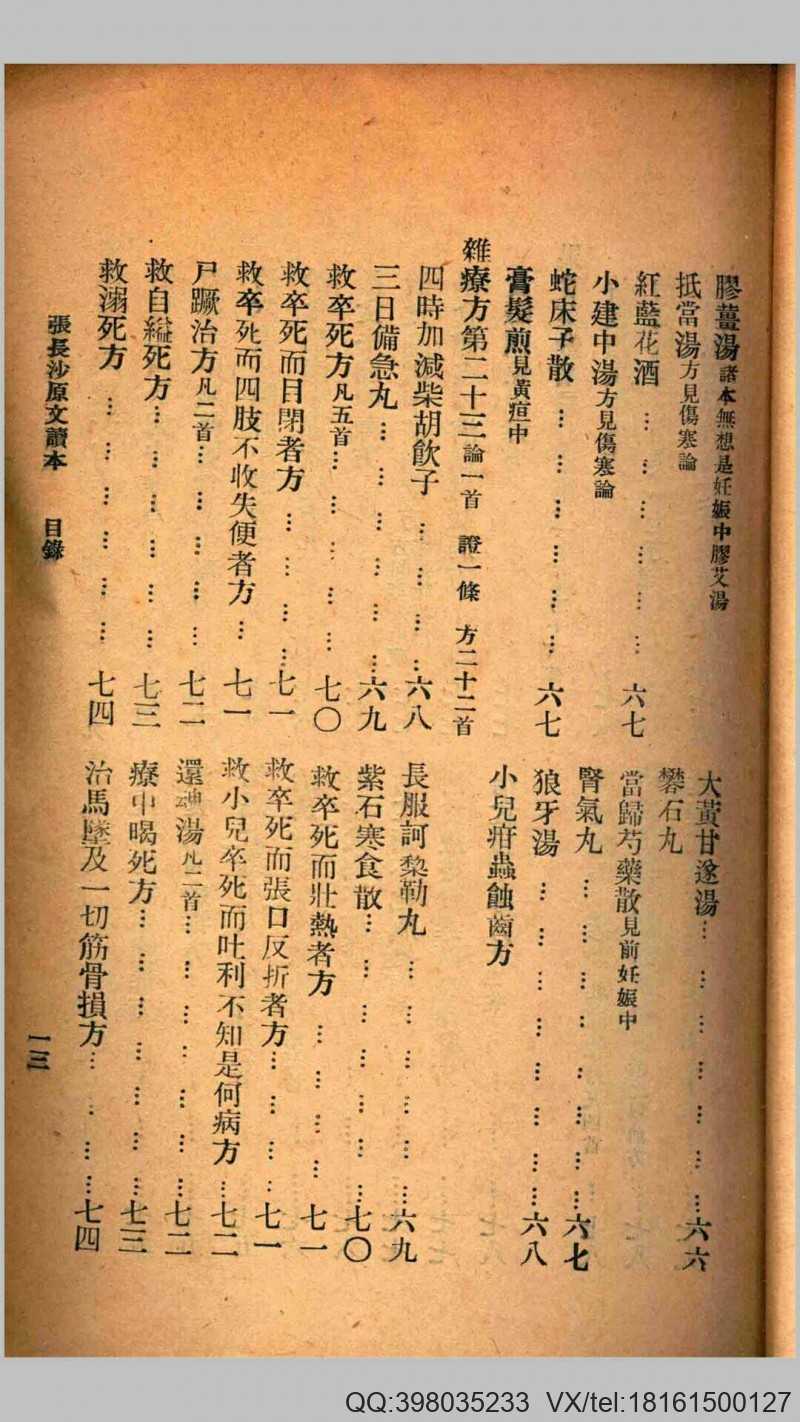 膠薑湯諸本無想是妊娠中膠艾湯
大黃甘遂湯……………………六六
抵當湯方見傷寒論
礬石丸
紅藍花酒……………六七
當歸芍藥散見前妊娠中
小建中湯方見傷寒論
腎氣丸……………………六七
蛇床子散………………六七
狼牙湯……………………六八
膏髮煎見黃疸中
小兒疳蟲蝕齒方
雜療方第二十三論一首 證一條 方二十二首
四時加減柴胡飲子…………六八
長服訶黎勒丸………………六九
三日備急丸………………六九
紫石寒食散…………………七〇
救卒死方凡五首……………七〇
救卒死而壯熱者方…………七一
救卒死而目閉者方…………七一
救卒死而張口反折者方………七一
救卒死而四肢不收失便者方…七一
救小兒卒死而吐利不知是何病方…七二
尸蹶治方凡二首……………七二
還魂湯凡二首………………七二
救自縊死方………………七三
療中暍死方…………………七三
救溺死方…………………七四
治馬墜及一切筋骨損方………七四
張長沙原文讀本 目錄
一三
QQ:398035233 VX/tel:18161500127